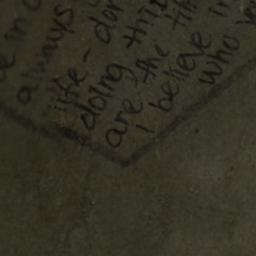 e in
always
life - don
doing thin
are the ti
I believe in
who